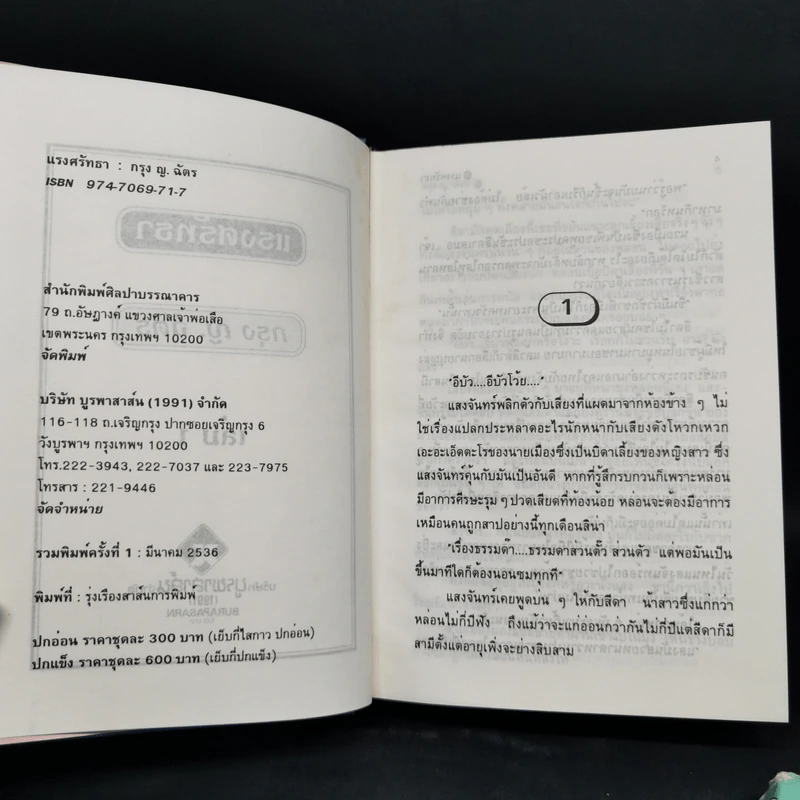 แรงศรัทธา : กรุง ญ. ฉัตร
ISBN 974-7069-71-7
สำนักพิมพ์ศิลปาบรรณาคาร
79 ถ.อัษฎางค์ แขวงศาลเจ้าพ่อเสือ
เขตพระนคร กรุงเทพฯ 10200
จัดพิมพ์
บริษัท บูรพาสาส์น (1991) จำกัด
116-118 ถ.เจริญกรุง ปากซอยเจริญกรุง 6
วังบูรพาฯ กรุงเทพฯ 10200
โทร.222-3943, 222-7037 และ 223-7975
โทรสาร : 221-9446
จัดจำหน่าย
รวมพิมพ์ครั้งที่ 1 : มีนาคม 2536
พิมพ์ที่ : รุ่งเรืองสาส์นการพิมพ์
ปกอ่อน ราคาชุดละ 300 บาท (เย็บกี่ไสกาว ปกอ่อน)
ปกแข็ง ราคาชุดละ 600 บาท (เย็บกี่ปกแข็ง)
1
"อีบัว....อีบัวโว้ย...."
แสงจันทร์พลิกตัวกับเสียงที่แผดมาจากห้องข้าง ๆ ไม่
ใช่เรื่องแปลกประหลาดอะไรนักหนากับเสียงดังโหวกเหวก
เอะอะเอ็ดตะโรของนายเมืองซึ่งเป็นบิดาเลี้ยงของหญิงสาว ซึ่ง
แสงจันทร์คุ้นกับมันเป็นอันดี หากที่รู้สึกรบกวนก็เพราะหล่อน
มีอาการศีรษะรุม ๆ ปวดเสียดที่ท้องน้อย หล่อนจะต้องมีอาการ
เหมือนคนถูกสาปอย่างนี้ทุกเดือนสิน่า
"เรื่องธรรมด๊า....ธรรมดาส่วนตั๊ว ส่วนตัว แต่พอมันเป็น
ขึ้นมาทีใดก็ต้องนอนซมทุกที"
แสงจันทร์เคยพูดบ่น ๆ ให้กับสีดา น้าสาวซึ่งแก่กว่า
หล่อนไม่กี่ปีฟัง ถึงแม้ว่าจะแก่อ่อนกว่ากันไม่กี่ปีแต่สีดาก็มี
สามีตั้งแต่อายุเพิ่งจะย่างสิบสาม